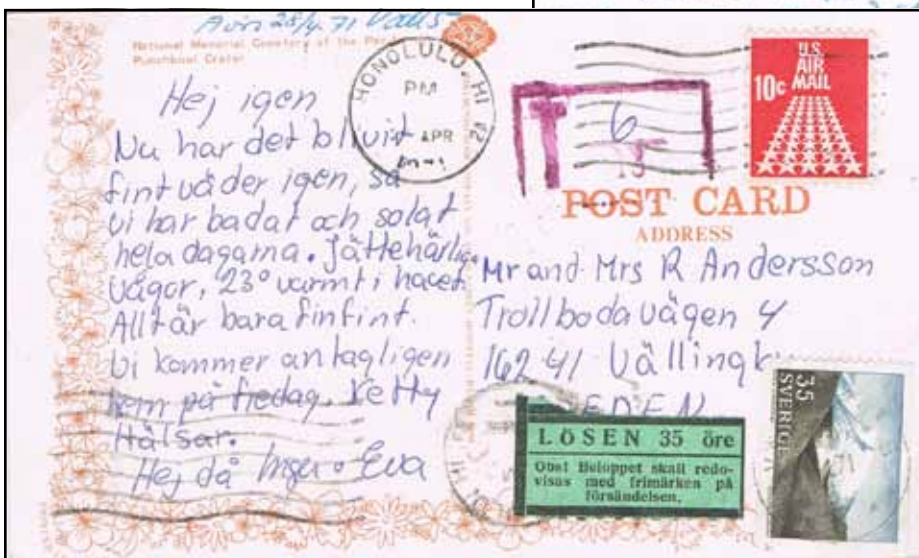 Avis 28/4.71
National Memorial Cemetery of the
Punchbowl Crater
HONOLULU, HI
PM
APR
T
6
15
U.S.
AIR
MAIL
10c
POST CARD
ADDRESS
Hej igen
Nu har det blivit
fint väder igen, så
vi har badat och solat
hela dagarna. Jättehärliga
vågor, 23° varmt i havet
Allt är bara finfint.
Vi kommer antagligen
hem på fredag. Ketty
Hälsar.
Hej då Inger o Eva
Mr and Mrs R Andersson
Trollbodavägen 4
162 41 Vällingby
SWEDEN
LÖSEN 35 öre
Obs! Beloppet skall redo-
visas med frimärken på
försändelsen.
35
SVERIGE